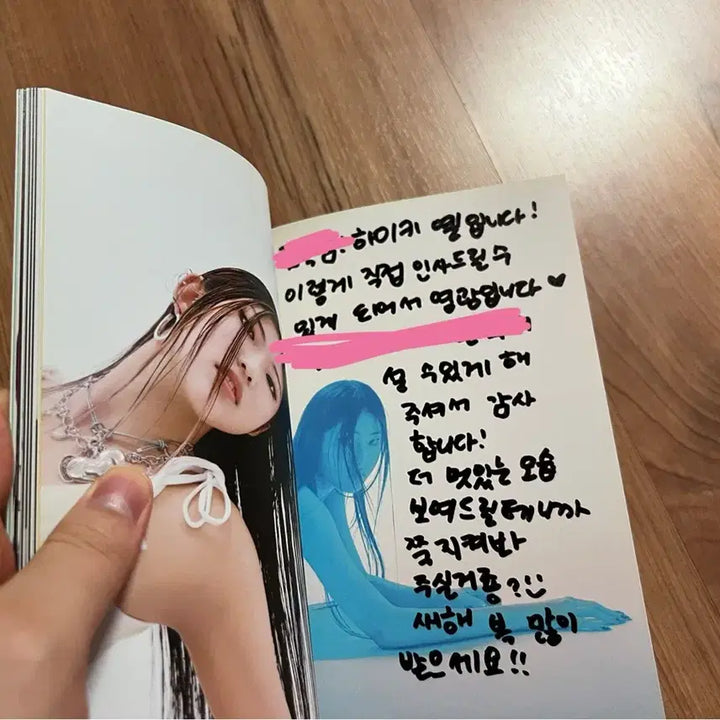 하이키 옐입니다!
이렇게 직접 인사드릴 수
있게 되어서 영광입니다 ♥
설 수있게 해
주셔서 감사
합니다!
더 멋있는 모습
보여드릴테니까
쭉 지켜봐
주실거죵?
새해 복 많이
받으세요!!